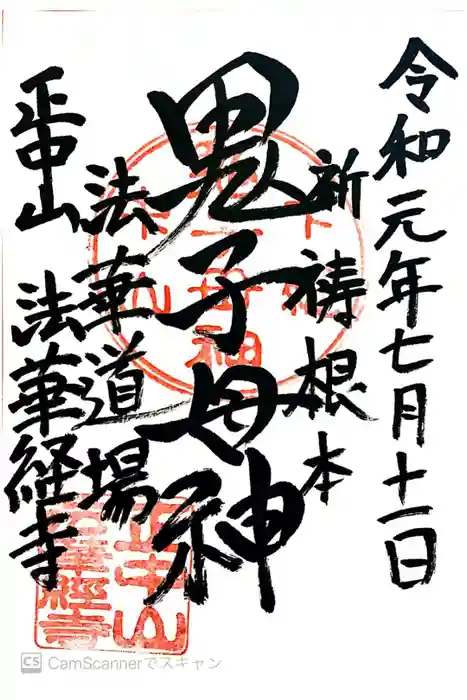 令和元年七月十一日
祈祷根本
鬼子母神
法華道場
正中山
法華経寺
正中山
法華經寺
CS CamScannerでスキャン